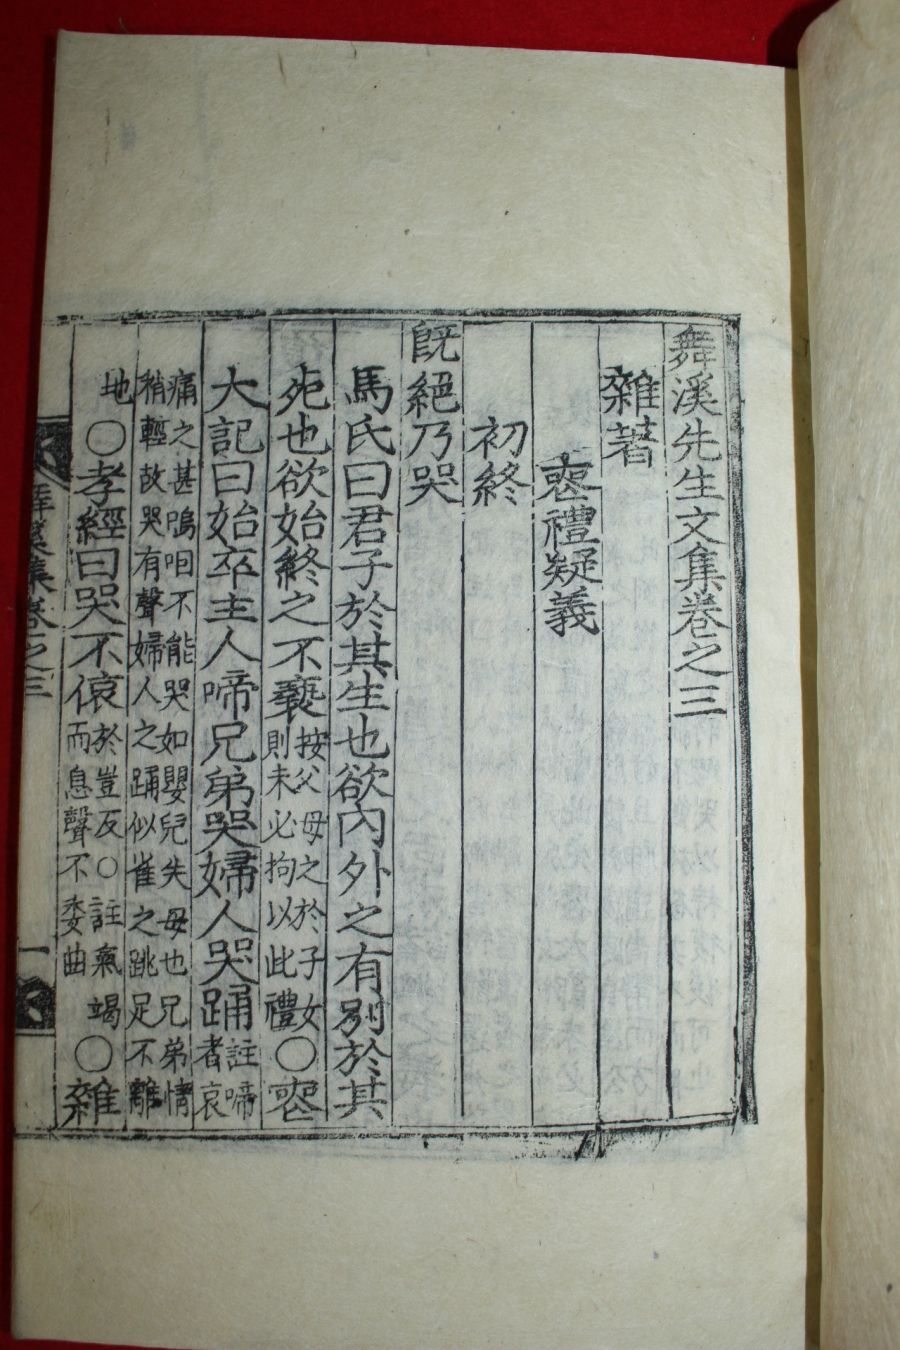 舞溪先生文集卷之三
雜著
喪禮疑義
初終
旣絕乃哭
馬氏曰君子於其生也欲內外之有別於其
死也欲始終之不褻按父母之於子女則未必拘以此禮〇喪
大記曰始卒主人啼兄弟哭婦人哭踊註啼者哀
痛之甚嗚咽不能哭如嬰兒失母也兄弟情
稍輕故哭有聲婦人之踊似雀之跳足不離
地〇孝經曰哭不偯於豈反〇註氣竭而息聲不委曲〇雜
舞溪集卷之三
一